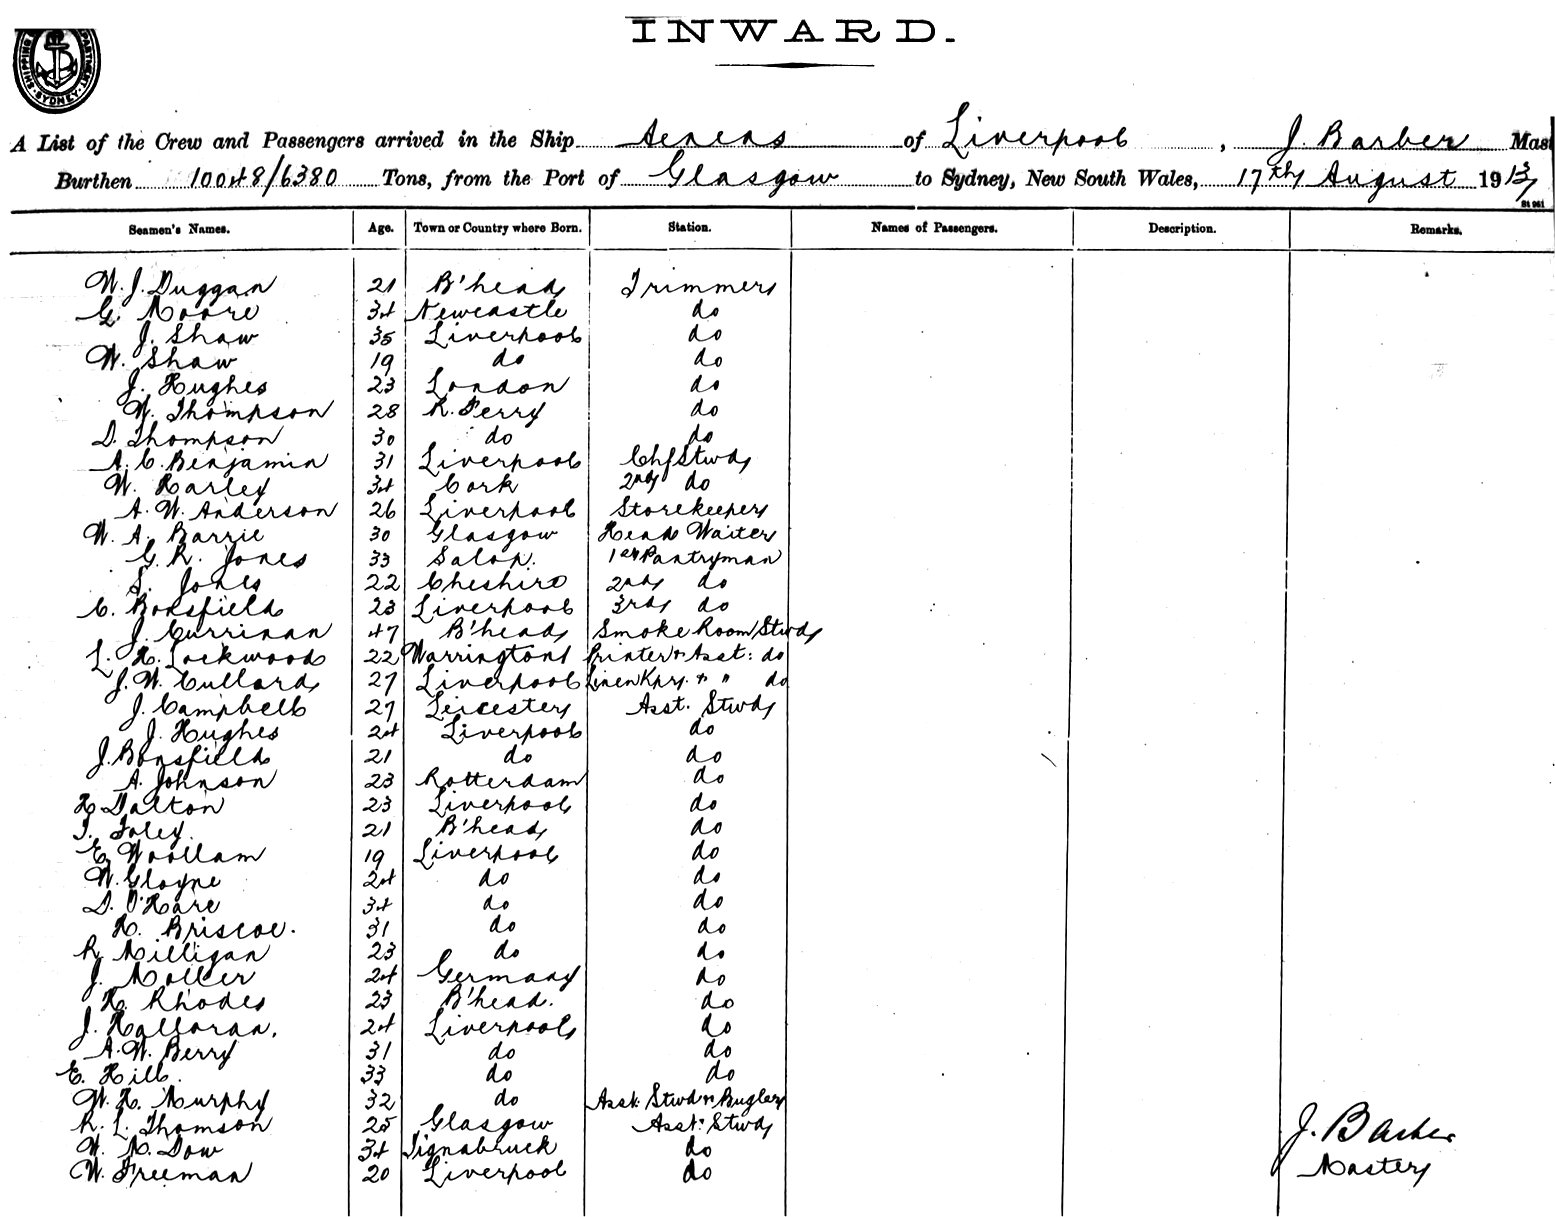 INWARD.
SHIPPING DEPARTMENT SYDNEY
A List of the Crew and Passengers arrived in the Ship Aeneas of Liverpool, J. Barber Mast
Burthen 10048/6380 Tons, from the Port of Glasgow to Sydney, New South Wales, 17th August 1913
Seamen's Names. Age. Town or Country where Born. Station. Names of Passengers. Description. Remarks.
W. J. Duggan 21 B'head Trimmer
G. Moore 34 Newcastle do
J. Shaw 35 Liverpool do
W. Shaw 19 do do
J. Hughes 23 London do
W. Thompson 28 R. Ferry do
D. Thompson 30 do do
A. C. Benjamin 31 Liverpool Chf Stwd
W. Harley 34 Cork 2nd do
A. W. Anderson 26 Liverpool Storekeeper
W. A. Barrie 30 Glasgow Head Waiter
G. R. Jones 33 Salop. 1st Pantryman
S. Jones 22 Cheshire 2nd do
C. Bonsfield 23 Liverpool 3rd do
J. Currinan 47 B'head Smoke Room Stwd
L. H. Lockwood 22 Warrington Printer + Asst: do
J. W. Cullard 27 Liverpool Linen Kpr. + " do
J. Campbell 27 Leicester Asst. Stwd
J. Hughes 24 Liverpool do
J. Bonsfield 21 do do
A. Johnson 23 Rotterdam do
H Dalton 23 Liverpool do
T. Foley. 21 B'head do
E. Woollam 19 Liverpool do
W. Gloyne 24 do do
D. O'Hare 34 do do
H. Briscoe. 31 do do
R Milligan 23 do do
J. Moller 24 Germany do
H. Rhodes 23 B'head. do
J. Halloran. 24 Liverpool do
A. W. Berry 31 do do
E. Hill. 33 do do
W. H. Murphy 32 do Asst. Stwd + Bugler
R. L. Thomson 25 Glasgow Asst. Stwd
W. M. Dow 34 do
W. Freeman 20 Liverpool do
J. Barber
Master